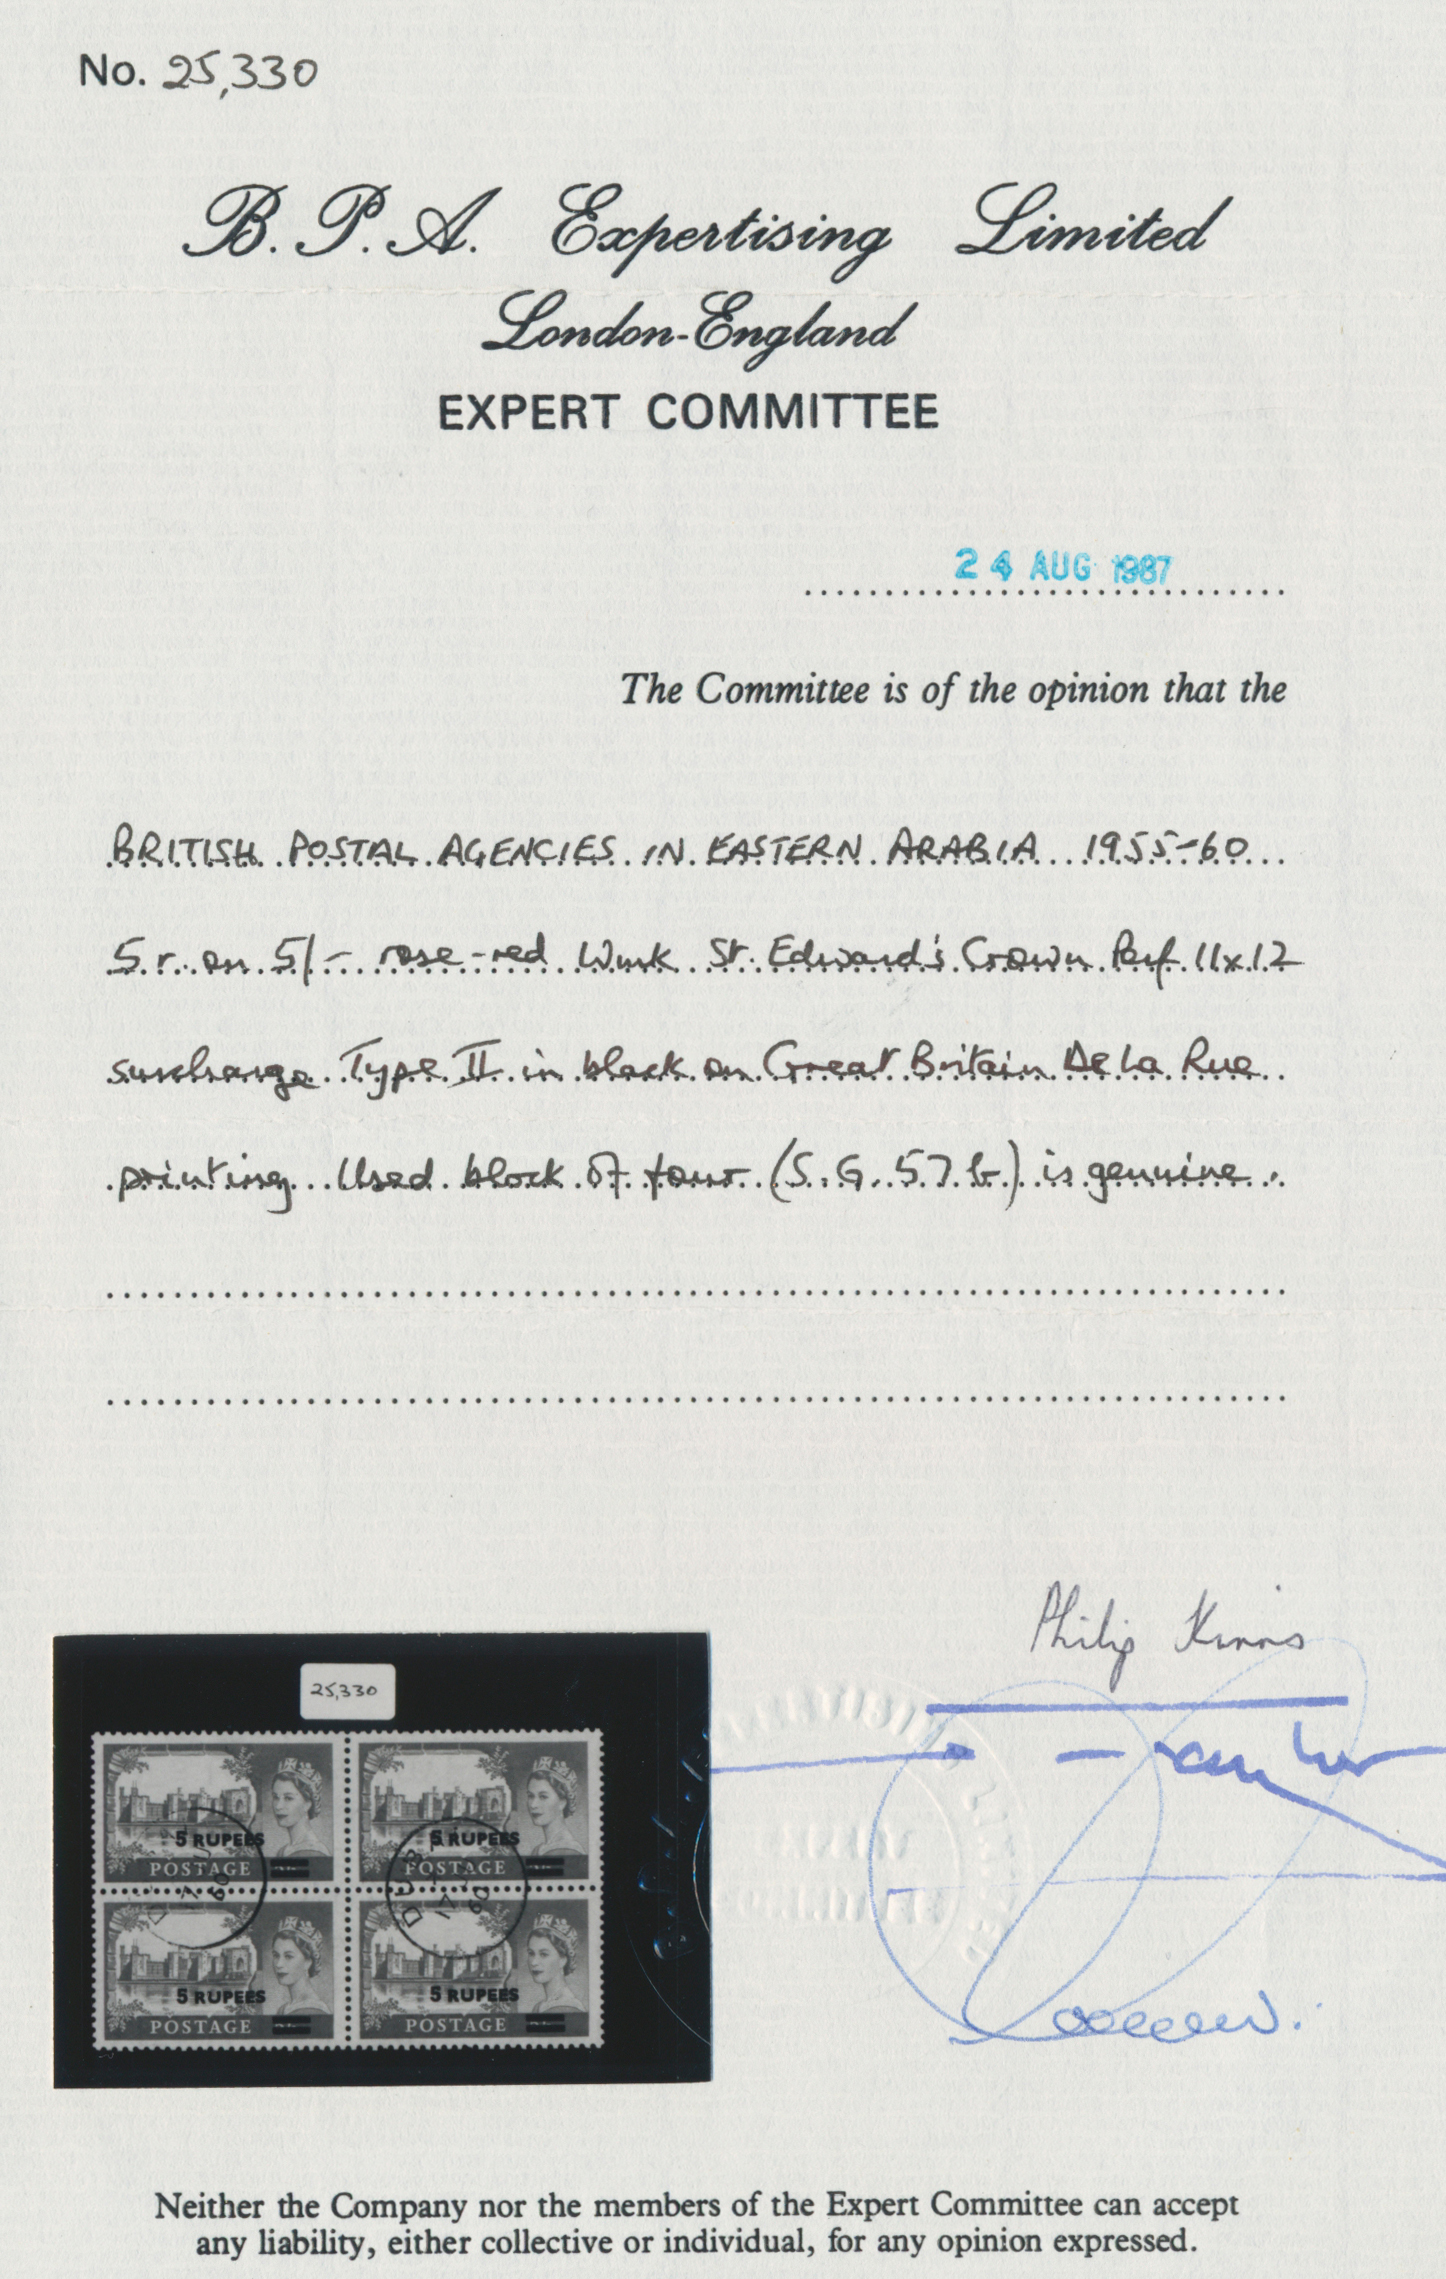 No. 25,330
B. P. A. Expertising Limited
London-England
EXPERT COMMITTEE
24 AUG 1987
The Committee is of the opinion that the
BRITISH POSTAL AGENCIES IN EASTERN ARABIA 1955-60
5 r. on 5/- rose-red Wmk St. Edward's Crown Perf 11x12
surcharge Type II in black on Great Britain De La Rue
printing Used block of four (S.G. 57b) is genuine.
Philip Kinns
25,330
5 RUPEES 5 RUPEES
POSTAGE POSTAGE
DUB
17
60
60
5 RUPEES 5 RUPEES
POSTAGE POSTAGE
Neither the Company nor the members of the Expert Committee can accept
any liability, either collective or individual, for any opinion expressed.